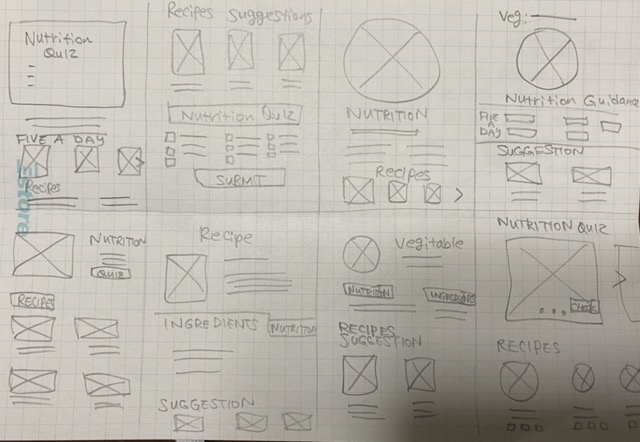 Nutrition
Quiz
FIVE A DAY
Recipes
Recipes Suggestions
Nutrition Quiz
SUBMIT
NUTRITION
Recipes
>
Veg:
Nutrition Guidance
FIVE
A
DAY
SUGGESTION
NUTRITION
QUIZ
RECIPES
Recipe
INGREDIENTS
NUTRITION
SUGGESTION
Vegitable
NUTRITION
INGREDIENTS
RECIPES
SUGGESTION
NUTRITION QUIZ
>
RECIPES